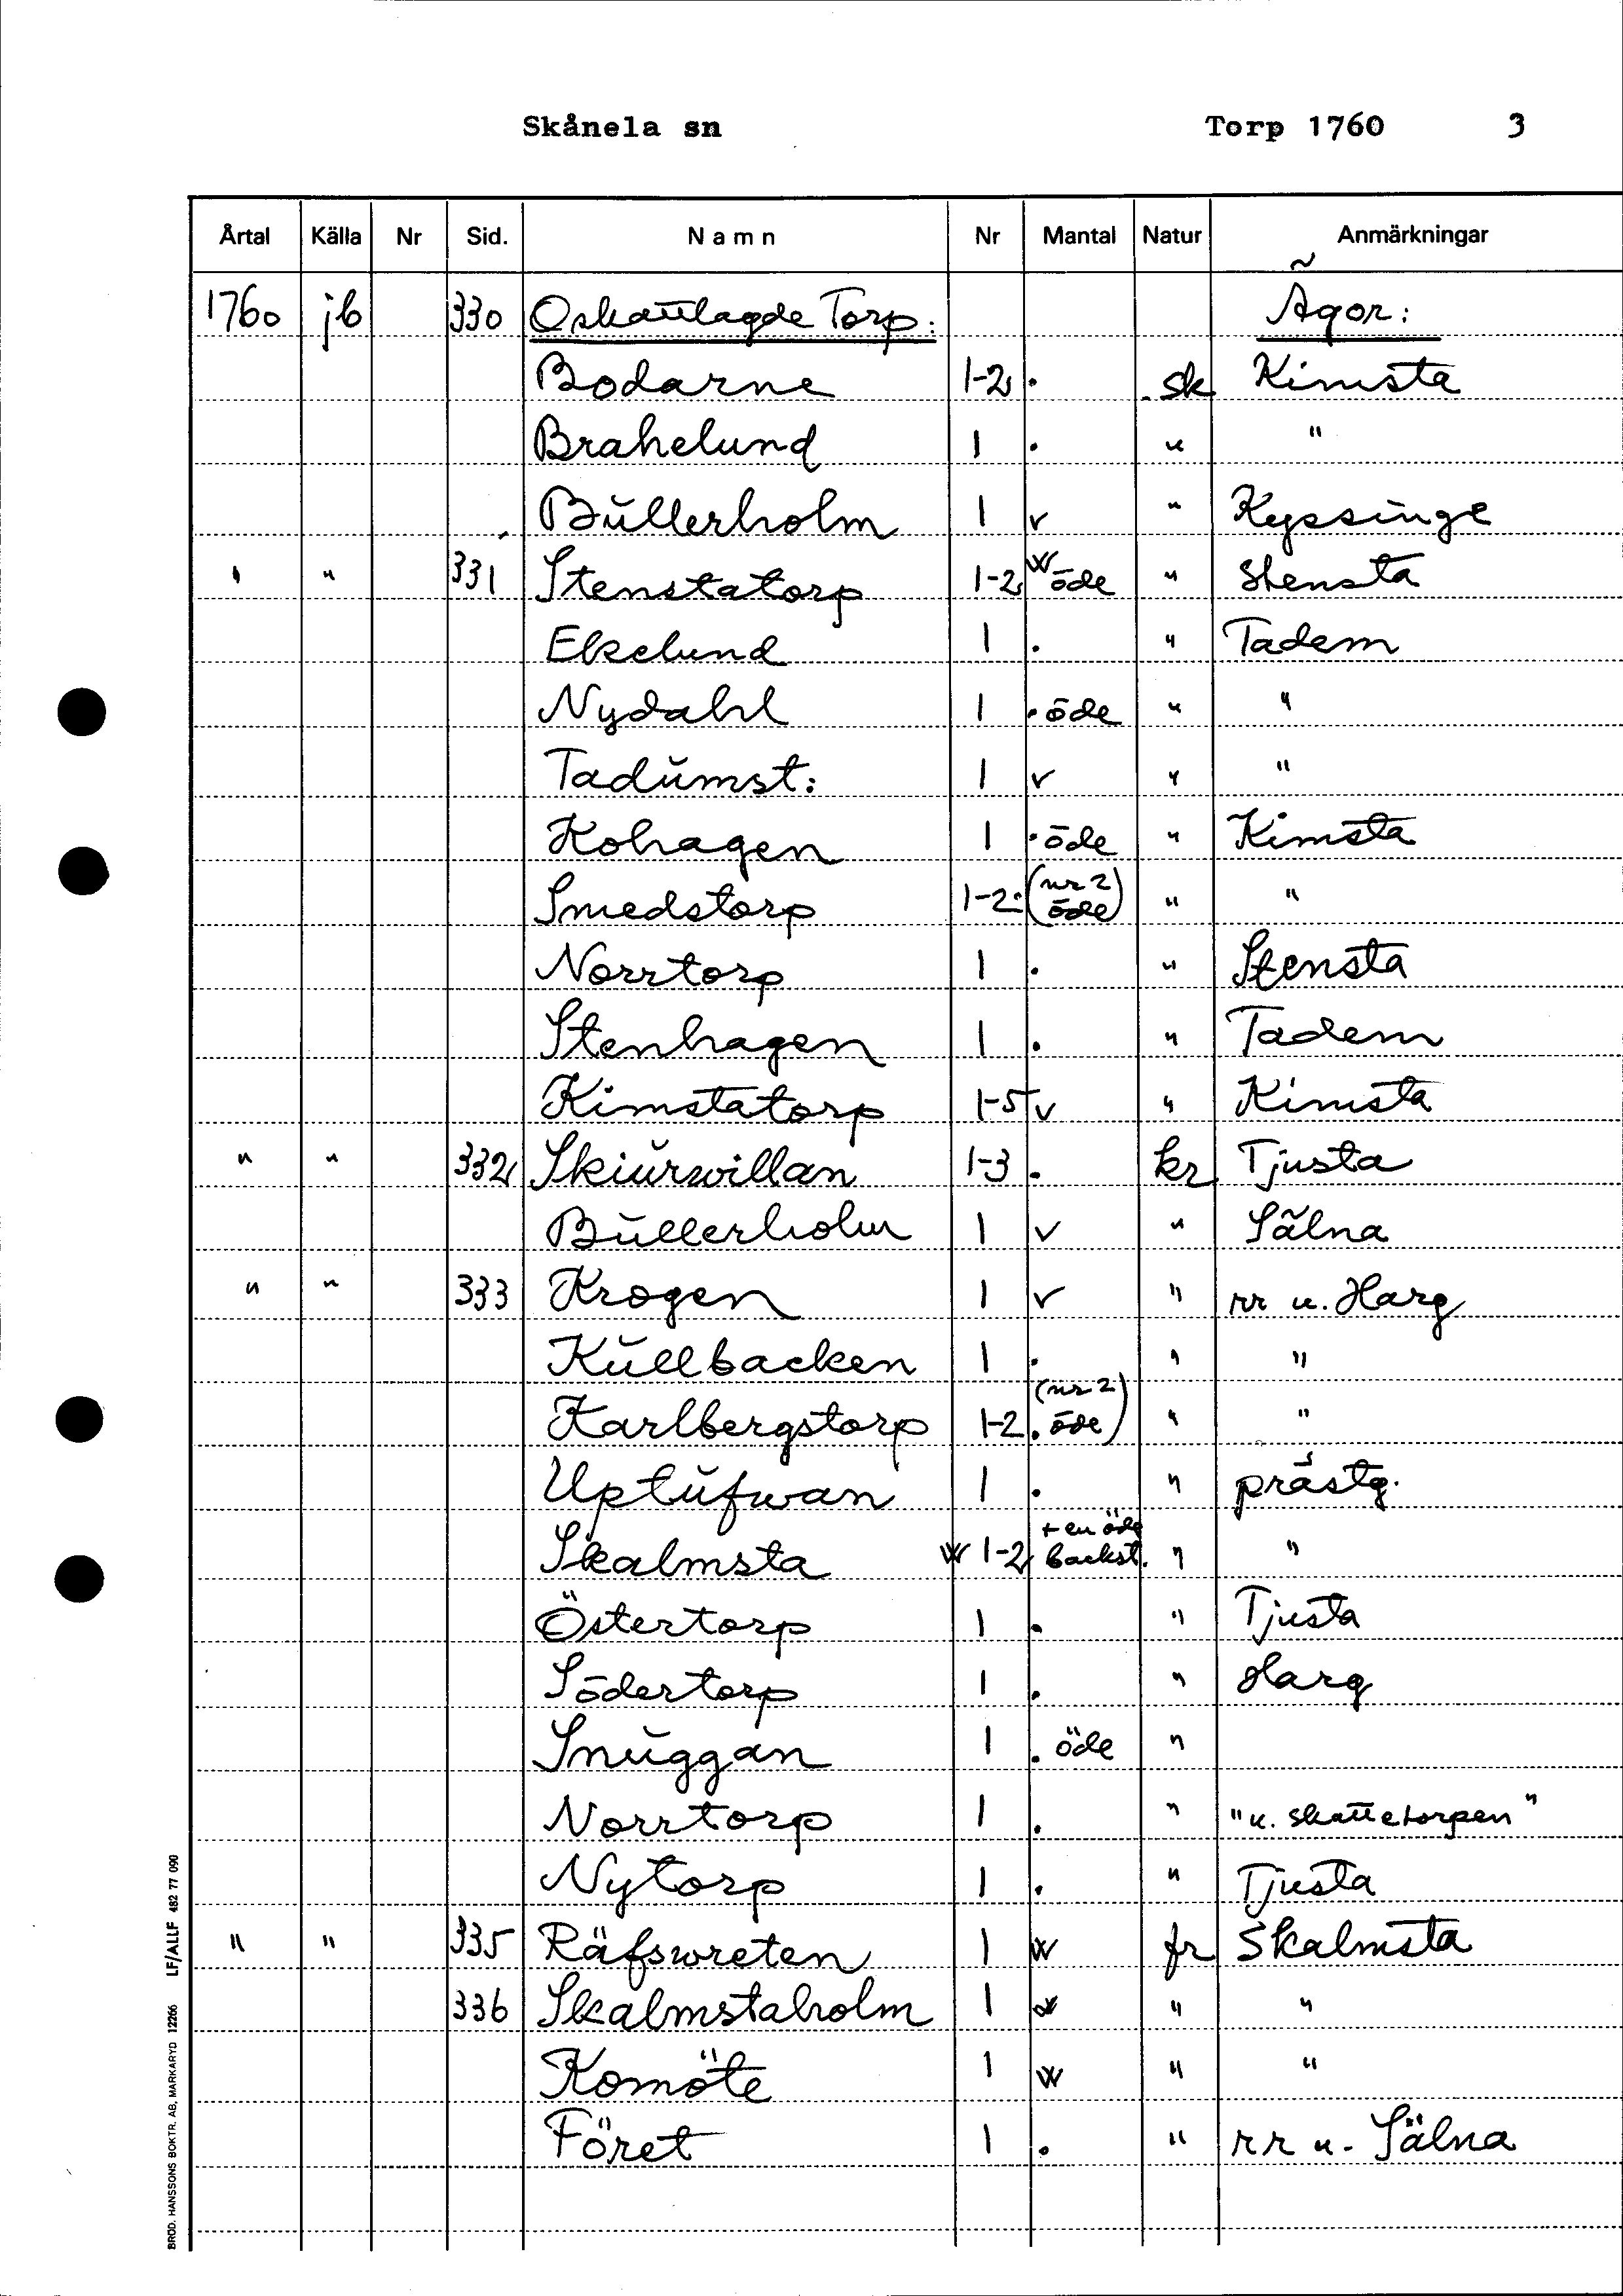 Skånela sn Torp 1760 3
Årtal Källa Nr Sid. Namn Nr Mantal Natur Anmärkningar
1760 jb 330 Oskattlagde Torp: Ägor:
Bodarne 1-2 . sk Kimsta
Brahelund 1 . " "
Bŭllerholm 1 v " Kyssinge
" " 331 Stenstatorp 1-2 w öde " Stensta
Ekelund 1 . " Tadem
Nydahl 1 . öde " "
Tadŭmst: 1 v " "
Kohagen 1 . öde " Kimsta
Smedstorp 1-2 . (nr 2 öde) " "
Norrtorp 1 . " Stensta
Stenhagen 1 . " Tadem
Kimstatorp 1-5 v " Kimsta
" " 332 Skiŭrwillan 1-3 . kr Tjusta
Bŭllerholm 1 v " Sälna
" " 333 Krogen 1 v " rr u. Harg
Kŭllbacken 1 . " "
Karlbergstorp 1-2 . (nr 2 öde) " "
Uptŭfwan 1 . " prästg.
Skalmsta w 1-2 + en öde backst. " "
Östertorp 1 . " Tjusta
Södertorp 1 . " Harg
Snŭggan 1 . öde "
Norrtorp 1 . " "u. skattetorpen"
Nytorp 1 . " Tjusta
" " 335 Räfswreten 1 w fr Skalmsta
336 Skalmstaholm 1 w " "
Komöte 1 w " "
Föret 1 . " rr u. Sälna
BROD. HANSSONS BOKTR. AB, MARKARYD 12266 LF/ALLF 482 77 090